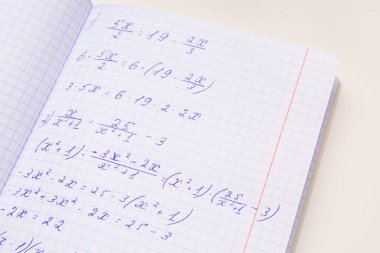 1) 5x/2 = 19 - 2x/3
6 · 5x/2 = 6 · (19 - 2x/3)
3 · 5x = 6 · 19 - 2 · 2x
2) x/x²+1 = 25/x²+1 - 3
(x²+1) · -3x²-2x/x²+1 = (x²+1) · (25/x²+1 - 3)
-3x²-2x = 25-3(x²+1)
-3x²+3x²-2x = 25-3
-2x = 22